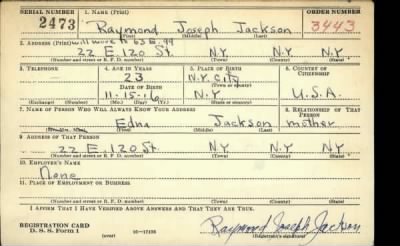 SERIAL NUMBER 1. NAME (Print) ORDER NUMBER
2473 Raymond Joseph Jackson 3443
(First) (Middle) (Last)
2. ADDRESS (Print) will move to 63 E. 99
22 E. 120 St. N.Y. N.Y.
(Number and street or R. F. D. number) (Town) (County) (State)
3. TELEPHONE 4. AGE IN YEARS 5. PLACE OF BIRTH 6. COUNTRY OF CITIZENSHIP
23 N.Y. City
DATE OF BIRTH (Town or county)
11-15-16 N.Y. U.S.A.
(Exchange) (Number) (Mo.) (Day) (Yr.) (State or country)
7. NAME OF PERSON WHO WILL ALWAYS KNOW YOUR ADDRESS 8. RELATIONSHIP OF THAT PERSON
Edna Jackson mother
(Mr., Mrs., Miss) (First) (Middle) (Last)
9. ADDRESS OF THAT PERSON
22 E. 120 St. N.Y. N.Y.
(Number and street or R. F. D. number) (Town) (County) (State)
10. EMPLOYER'S NAME
None
11. PLACE OF EMPLOYMENT OR BUSINESS
(Number and street or R. F. D. number) (Town) (County) (State)
I AFFIRM THAT I HAVE VERIFIED ABOVE ANSWERS AND THAT THEY ARE TRUE.
REGISTRATION CARD Raymond Joseph Jackson
D. S. S. Form 1 (over) 16—17105 (Registrant's signature)